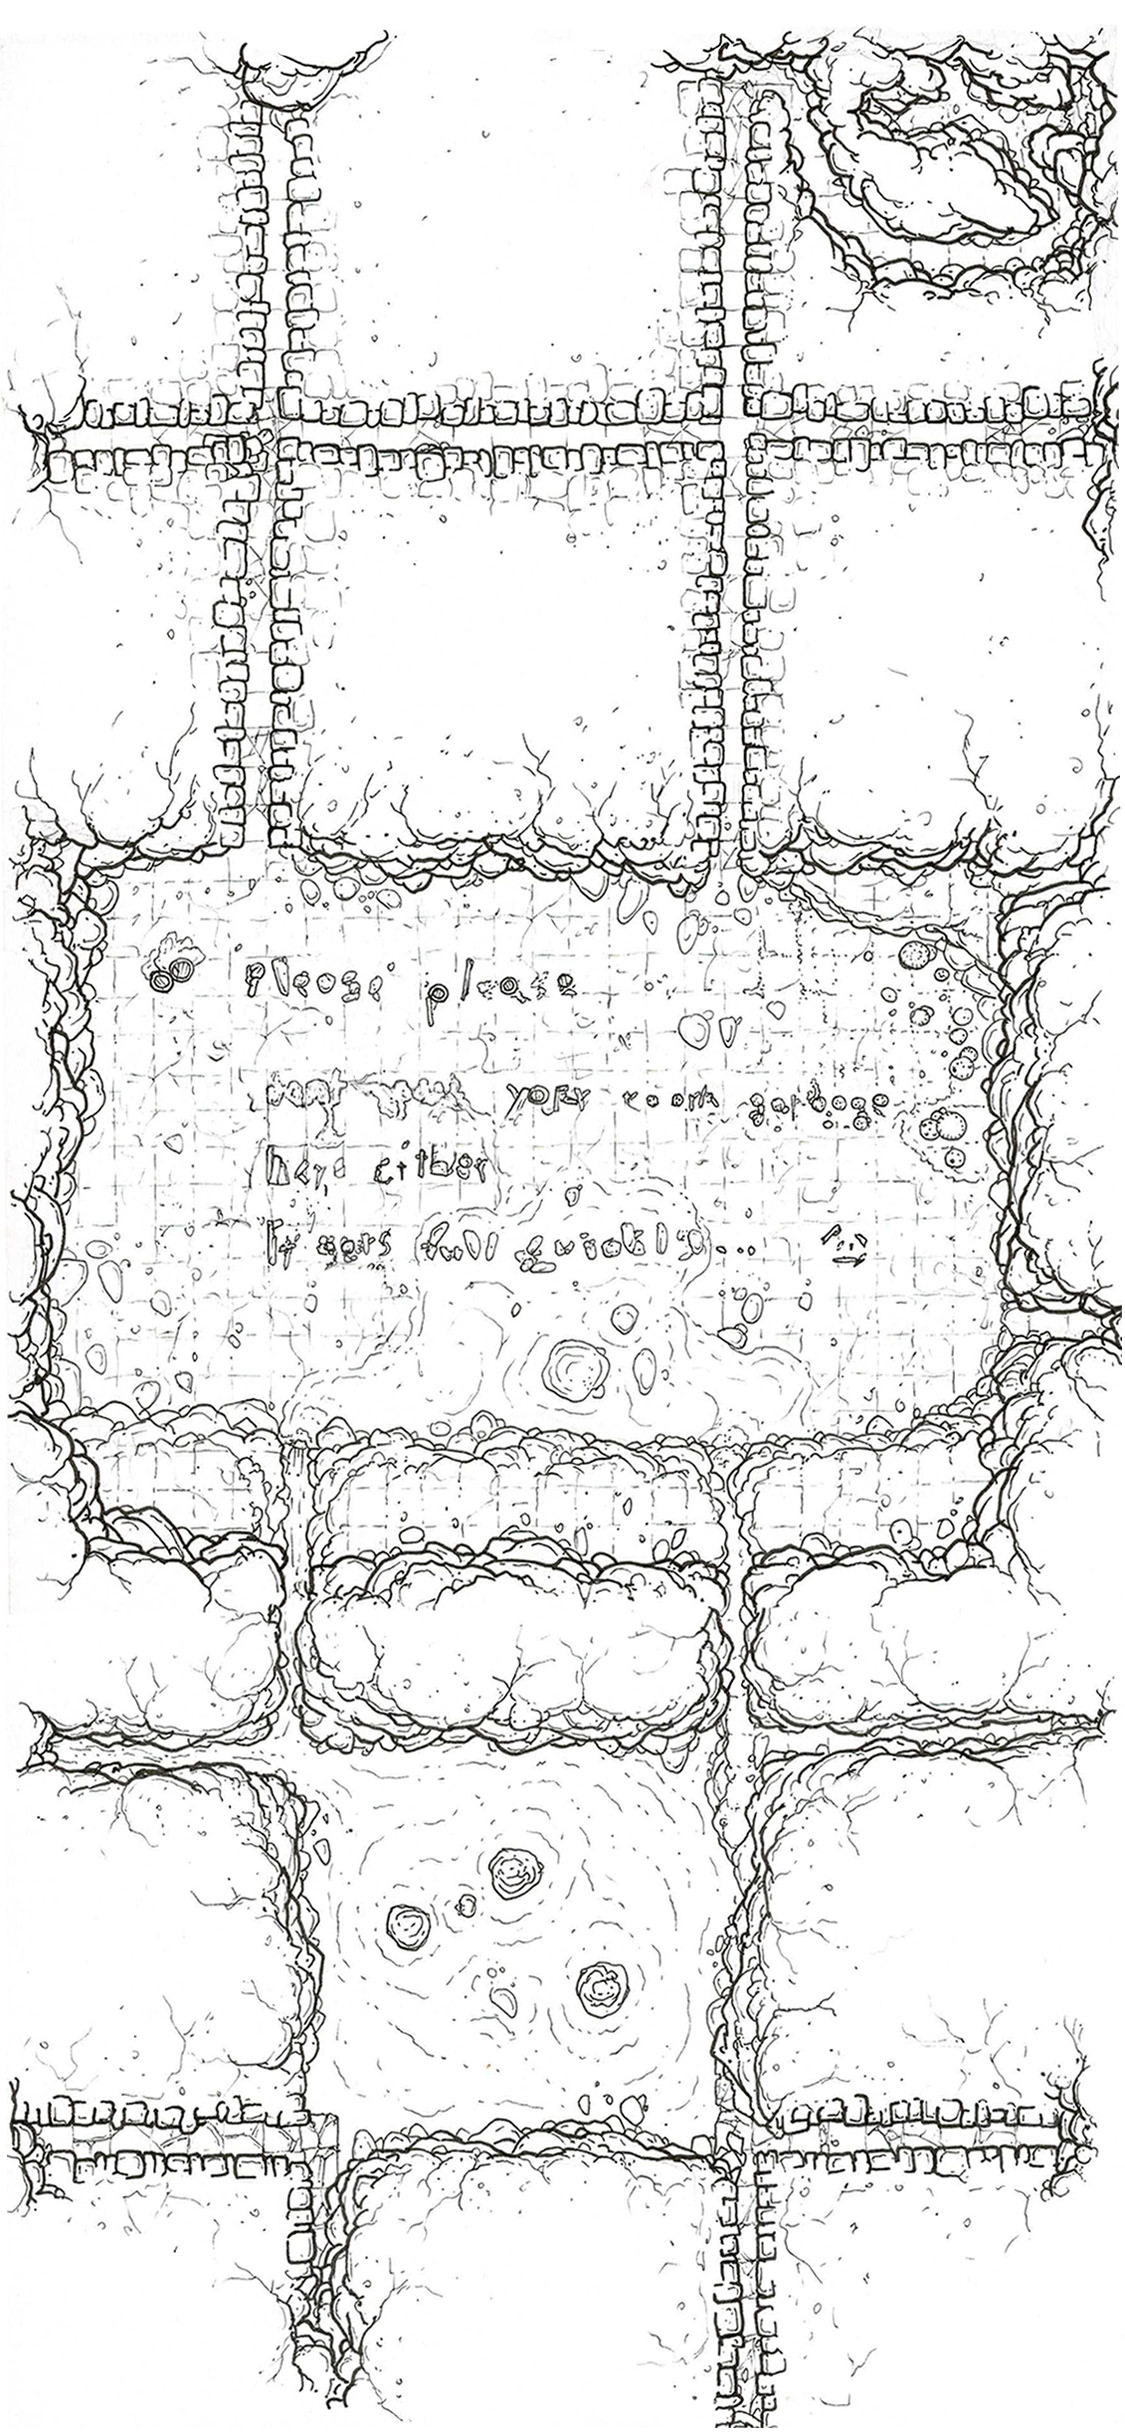 please please
dont your garbage
here either
It gets full quickly...